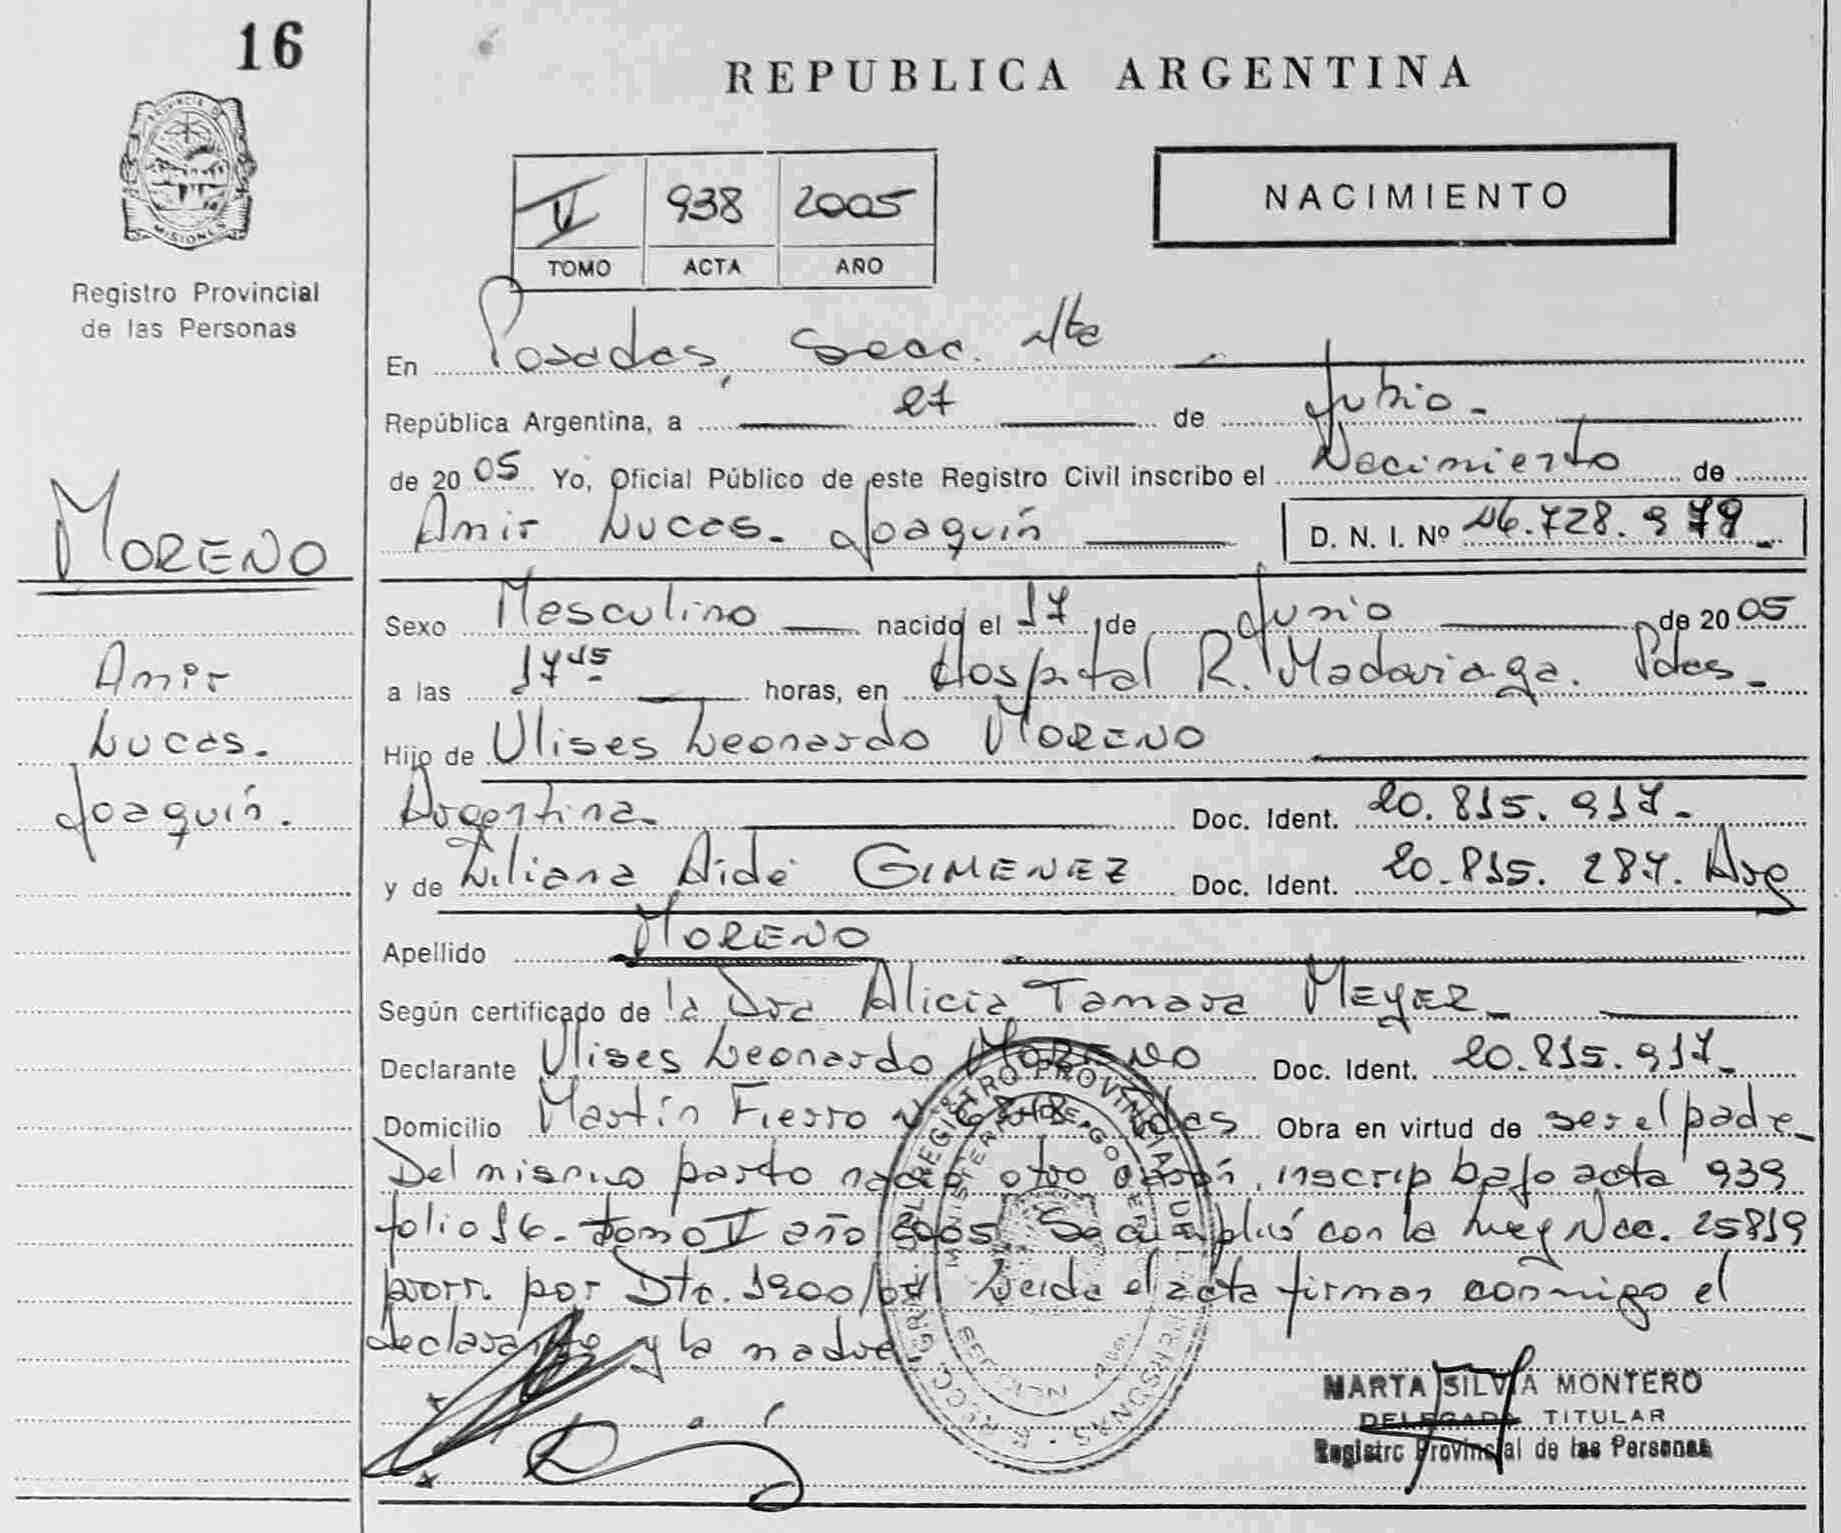 16
REPUBLICA ARGENTINA
PROVINCIA DE
MISIONES
Registro Provincial
de las Personas
V 938 2005
TOMO ACTA AÑO
NACIMIENTO
En Posadas, Secc. 4ta
República Argentina, a 27 de Julio.
de 2005 Yo, Oficial Público de este Registro Civil inscribo el Nacimiento de
Amir Lucas. Joaquín D. N. I. Nº 46.728.979
MORENO
Amir
Lucas.
Joaquín.
Sexo Masculino nacido el 17 de Junio de 2005
a las 17 45 horas, en Hospital R. Madariaga. Pdas.
Hijo de Ulises Leonardo MORENO
Argentina Doc. Ident. 20.815.917.
y de Liliana Aidé GIMENEZ Doc. Ident. 20.815.287. Arg
Apellido MORENO
Según certificado de la Dra Alicia Tamara MEYER
Declarante Ulises Leonardo MORENO Doc. Ident. 20.815.917.
Domicilio Martín Fierro Pdas Obra en virtud de ser el padre
Del mismo parto nació otro varón, inscrip bajo acta 939
folio 16. tomo V año 2005 Se cumplió con la Ley Nac. 25819
prorr. por Dto. 1900/04 Leida el acta firman conmigo el
declarante y la madre
REGISTRO PROVINCIAL DE LAS PERSONAS
MINISTERIO DE GOBIERNO
MARTA SILVIA MONTERO
DELEGADA TITULAR
Registro Provincial de las Personas